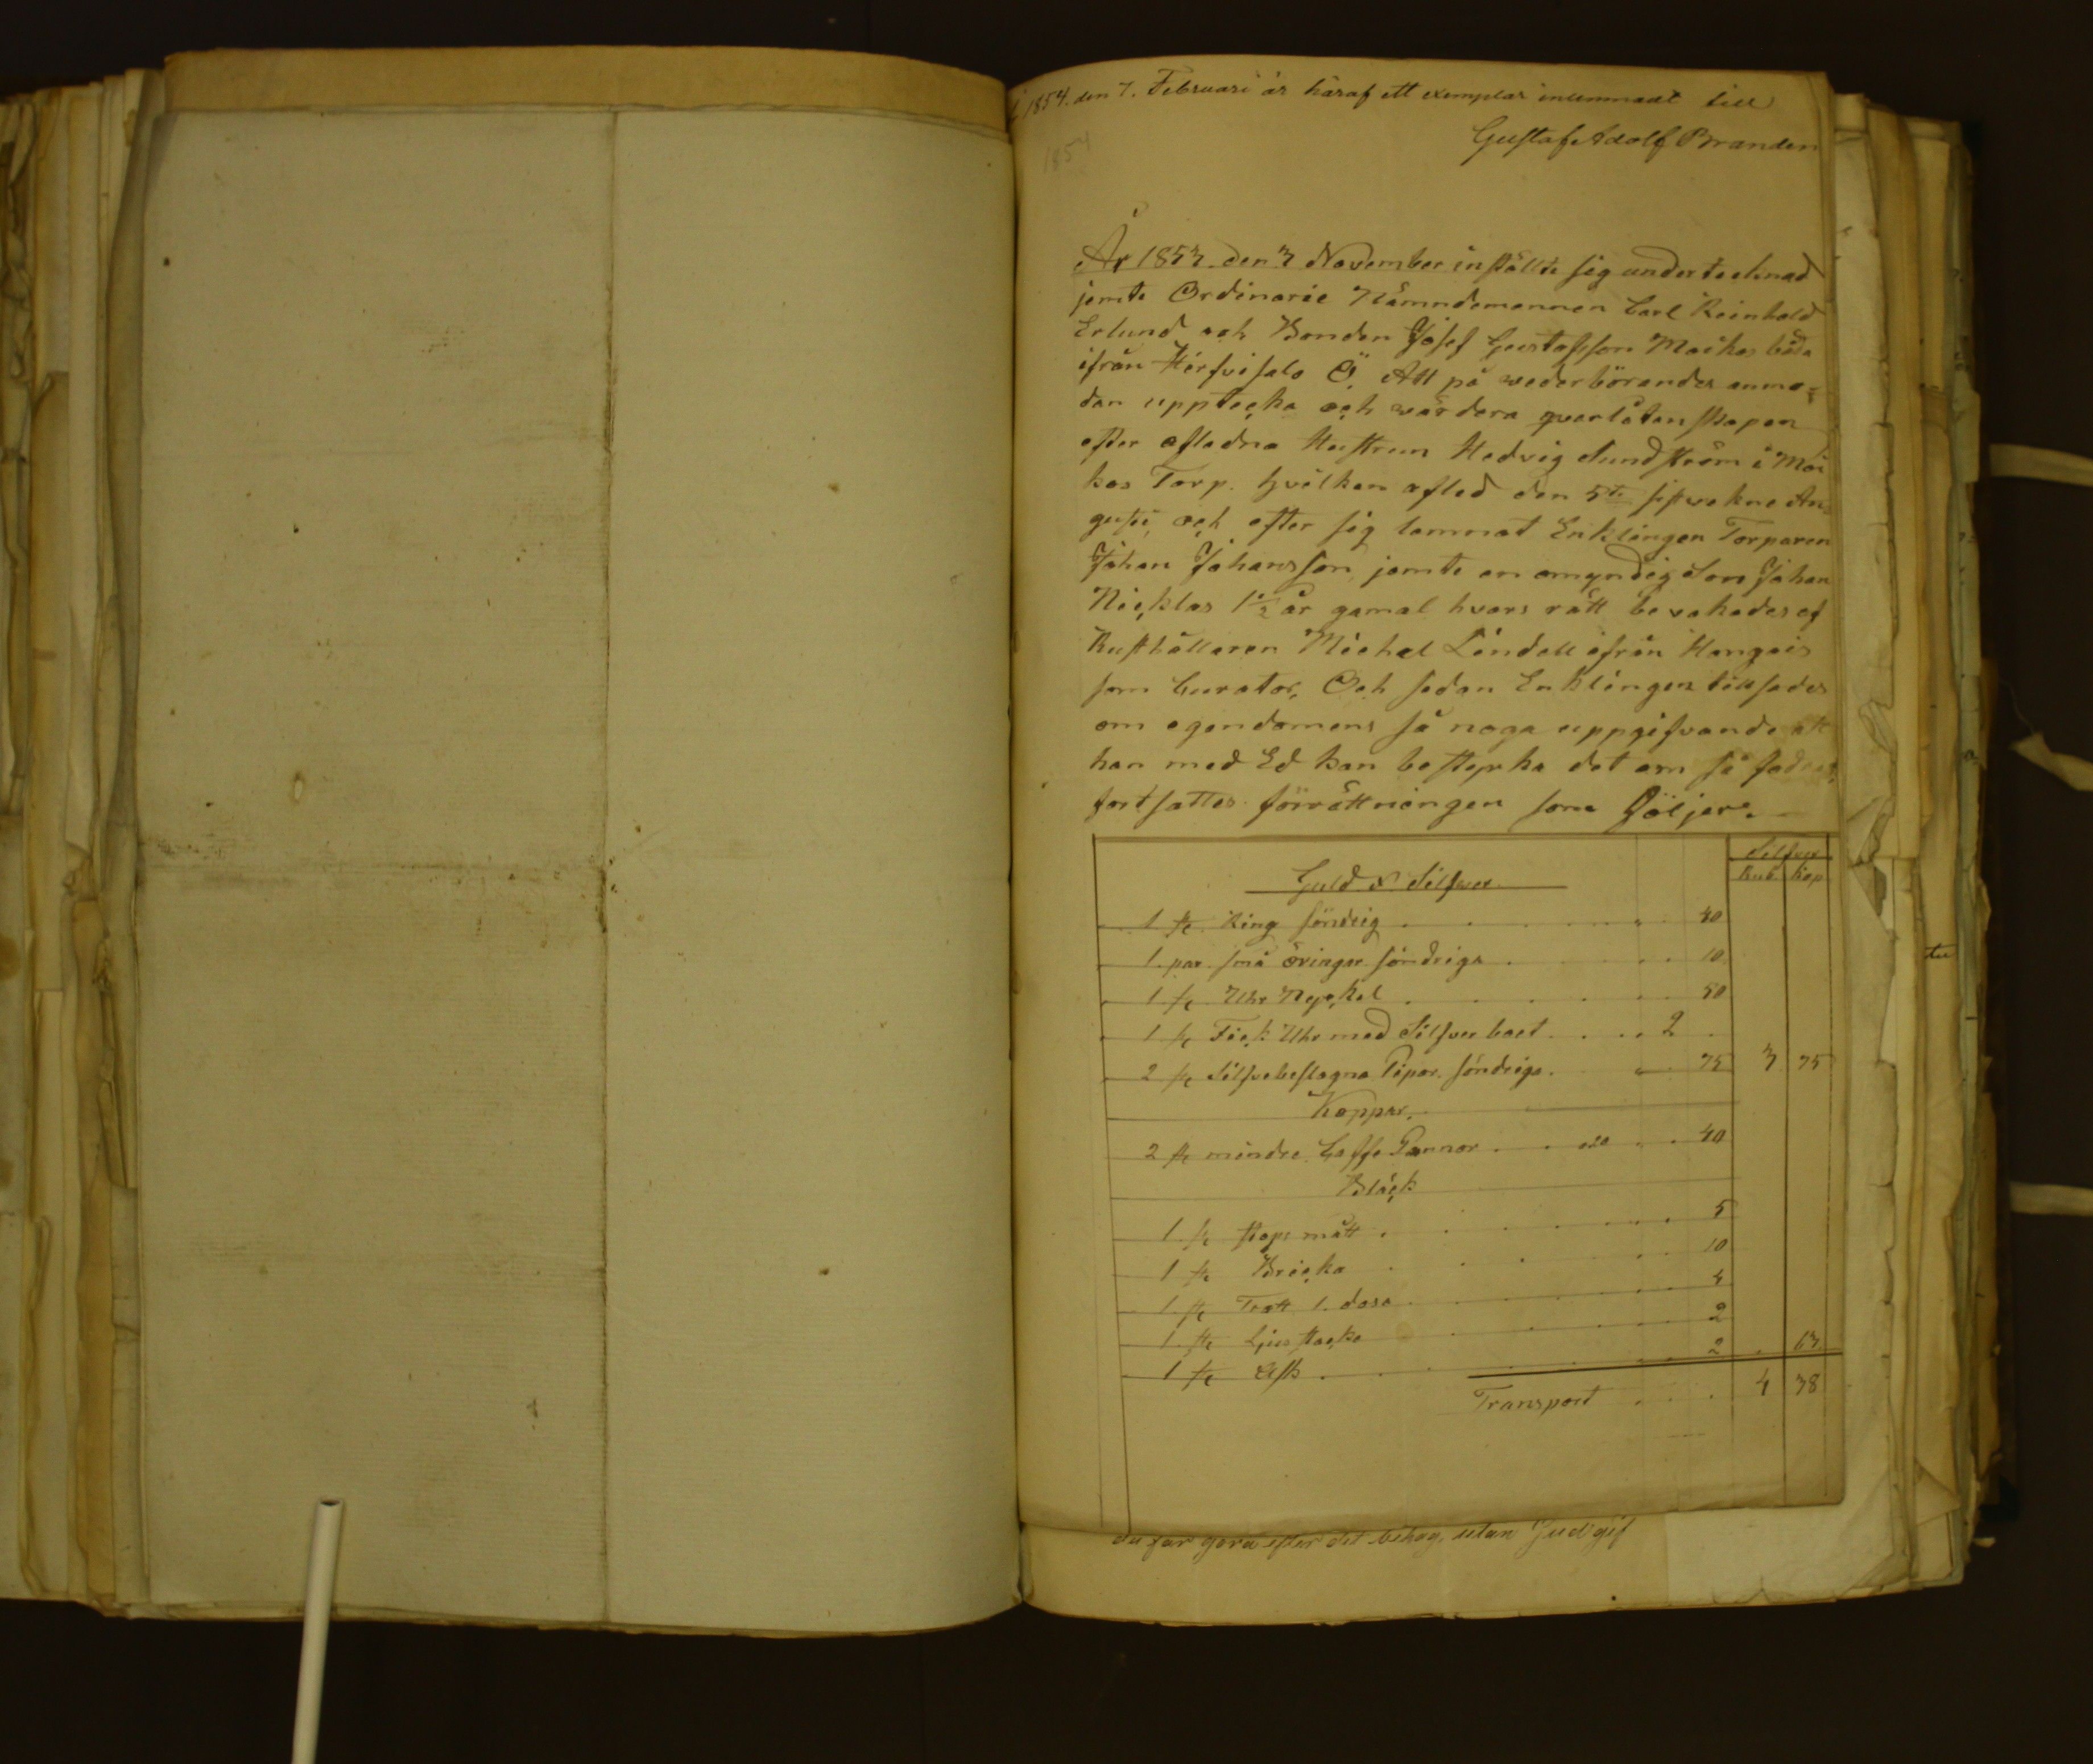 1854. den 7. Februari är häraf ett exemplar inlemnadt till
Gustaf Adolf Branden
1854
År 1853 den 3 November instälte sig undertecknad
jemte Ordinarie Nämndemannen Carl Reinhold
Erlund och Bonden Josef Gustafsson Maikos båda
ifrån Hirfvisalo Ö. Att på wederbörandes anmo-
dan uppteckna och wärdera qvarlåtenskapen
efter afledna Hustrun Hedvig Sundström i Mai
kos Torp. hvilken afled den 5te sistvekne Au-
gusti, och efter sig lemnat Enklingen Torparen
Johan Johansson, jemte en omyndig Son Johan
Nicklas 1 1/2 år gamal hvars rätt bevakades af
Rusthållaren Michel Lindell ifrån Hangais
som Curator, Och sedan Enklingen tillsades
om egendomens så noga uppgifvande att
han med Ed kan bestyrka det om så fodras,
fortsattes förrättningen som följer.
Silfver
Guld & Silfver Rub Kop
1 st Ring söndrig 40
1 par små öringar söndriga 10
1 st Uhr Nyckel 50
1 st Fick Uhr med Silfver boet 2
2 st Silfvebeslagna Pipor söndriga 75 3 75
Koppar.
2 st mindre Caffe Pannor 20 40
Bläck
1 st stops mått 5
1 st Bricka 10
1 st Tratt 1. dosa 4
1 st Ljus stacke 2
1 st Ask 2 63
Transport 4 38
du får göra efter ditt behag, utan Gud gif
tu